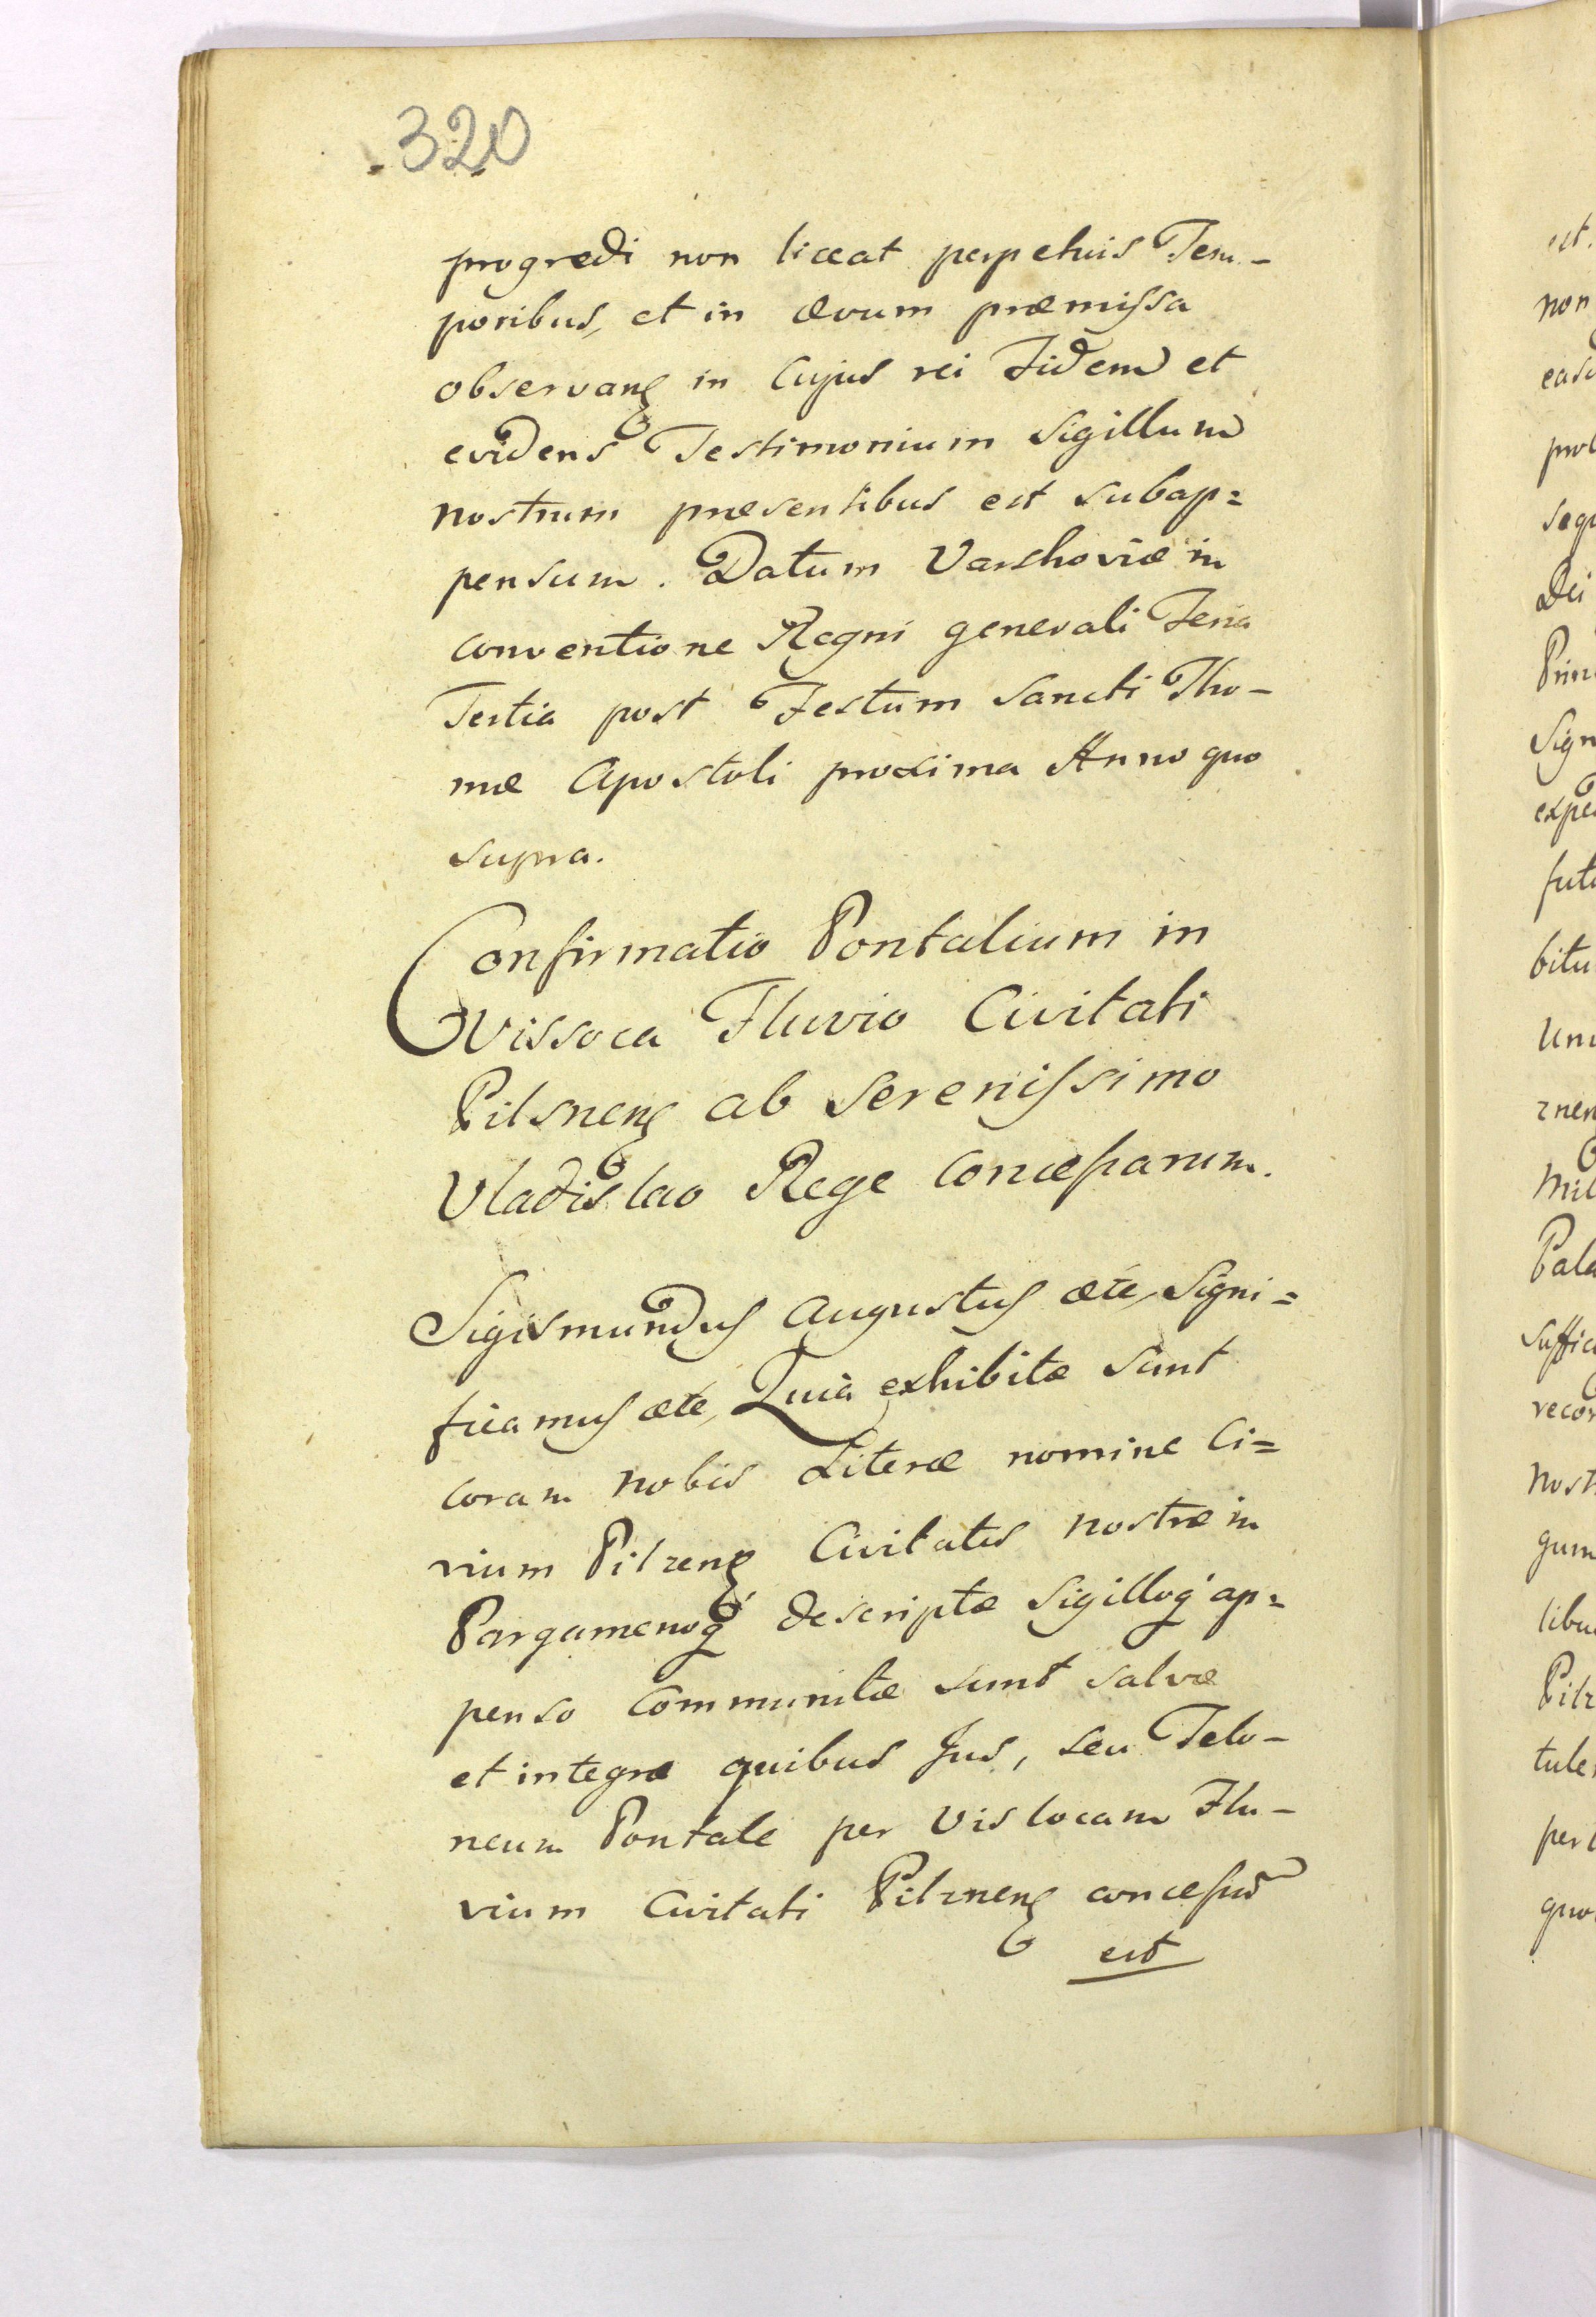 320
progredi non liceat perpetuis Tem-
poribus, et in ævum præmissa
observanꝫ in Cujus rei Fidem et
evidens Testimonium Sigillum
nostrum præsentibus est subap=
pensum. Datum Varshoviæ in
conventione Regni generali Feria
Tertia post Festum Sancti Tho-
mæ Apostoli proxima Anno quo
supra.
Confirmatio Pontalium in
Vissoca Fluvio Civitati
Pilsnenꝫ ab Serenissimo
Vladislao Rege Concessarum.
Sigismundus Augustus æte, Signi=
ficamus æte, Quia exhibitæ sunt
coram nobis Literæ nomine Ci=
vium Pilzenꝫ Civitatis nostræ in
Pargamenoq́ descriptæ Sigilloq́ ap=
penso communitæ sunt salvæ
et integræ quibus Jus, seu Telo-
neum Pontale per Vislocam Flu-
vium Civitati Pilznenꝫ concessũ
est
est.
non